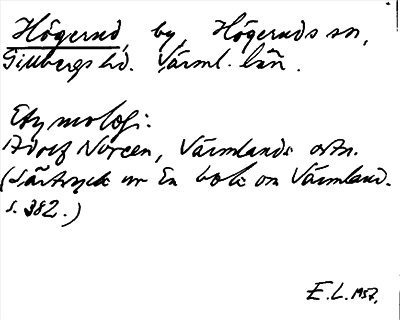 Högerud, by, Högeruds sn,
Gillbergs hd. Värml. län.
Etymologi:
Adolf Noreen, Värmlands ortn.
(Särtryck ur En bok om Värmland.
s. 382.)
E.L. 1957.